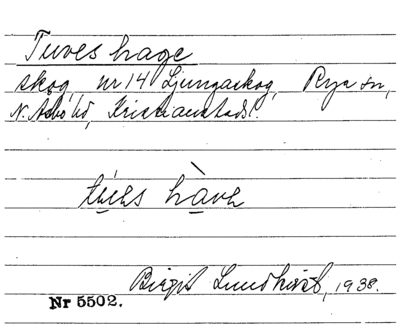 Tuves hage
skog, nr 14 Ljungaskog, Rya sn,
N. Åsbo hd, Kristianstads l.
hàvh
Birgit Lundkvist, 1938.
Nr 5502.